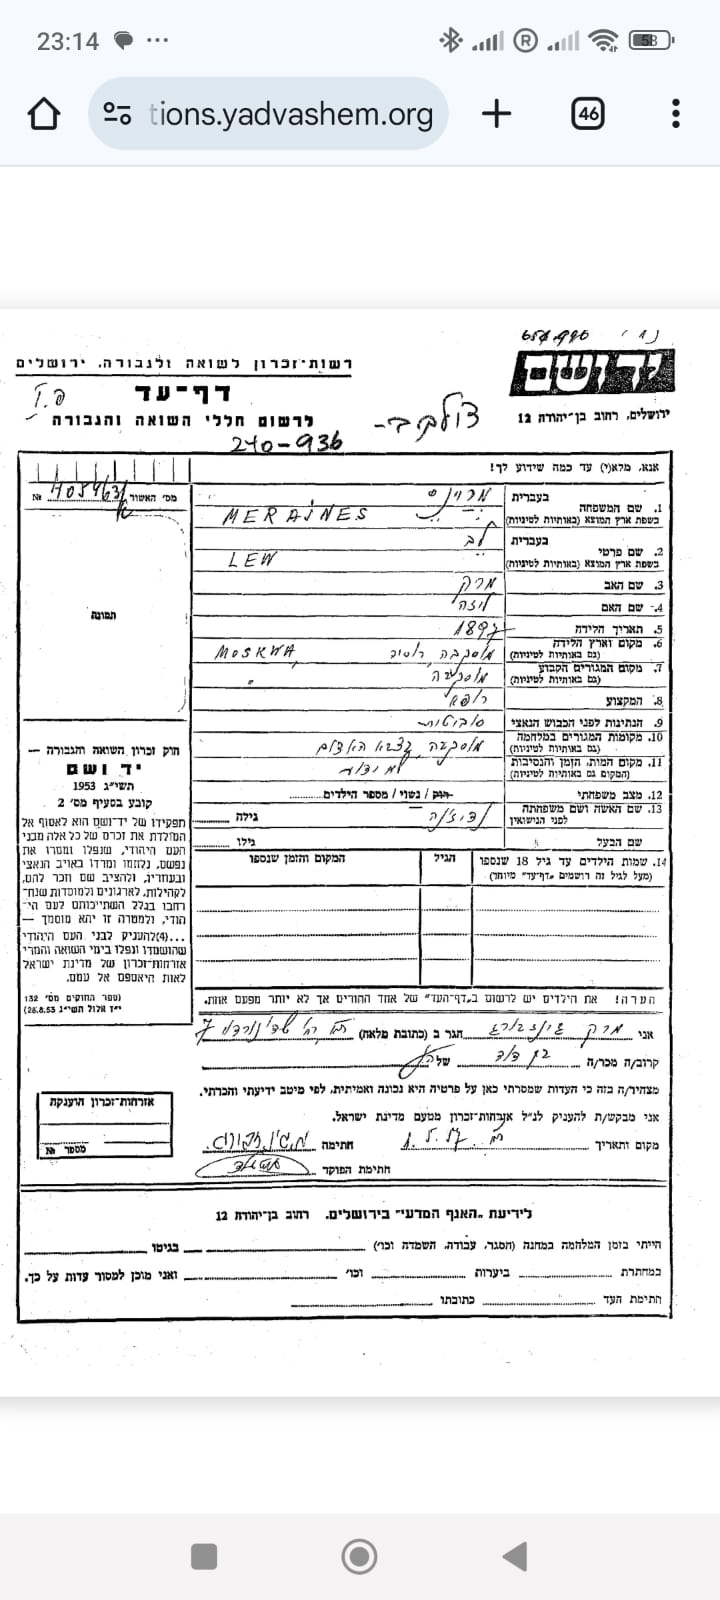 23:14
58
tions.yadvashem.org
46
654.996
יד ושם
ירושלים, רחוב בן־יהודה 12
רשות־זכרון לשואה ולגבורה, ירושלים
דף־עד
לרשום חללי השואה והגבורה
240-936
אנא, מלא(י) עד כמה שידוע לך!
מס' האשור №
תמונה
1. שם המשפחה
בעברית
בשפת ארץ המוצא (באותיות לטיניות)
MERAINES
2. שם פרטי
בעברית לב
בשפת ארץ המוצא (באותיות לטיניות)
LEW
3. שם האב מרק
4. שם האם ליזה
5. תאריך הלידה 1897
6. מקום וארץ הלידה
(גם באותיות לטיניות)
מוסקבה, רוסיה MOSKWA
7. מקום המגורים הקבוע
(גם באותיות לטיניות)
מוסקבה
8. המקצוע רופא
9. הנתינות לפני הכבוש הנאצי סוביטית
10. מקומות המגורים במלחמה
(גם באותיות לטיניות)
מוסקבה, בצבא האדום
11. מקום המות, הזמן והנסיבות
(המקום גם באותיות לטיניות)
לא ידוע
12. מצב משפחתי רוק / נשוי / מספר הילדים
13. שם האשה ושם משפחתה
לפני הנישואין
גילה
שם הבעל
גילו
14. שמות הילדים עד גיל 18 שנספו
(מעל לגיל זה רושמים "דף־עד" מיוחד)
הגיל
המקום והזמן שנספו
חוק זכרון השואה והגבורה —
יד ושם
תשי"ג 1953
קובע בסעיף מס' 2
תפקידו של יד־ושם הוא לאסוף אל
המולדת את זכרם של כל אלה מבני
העם היהודי, שנפלו ומסרו את
נפשם, נלחמו ומרדו באויב הנאצי
ובעוזריו, ולהציב שם וזכר להם,
לקהילות, לארגונים ולמוסדות שנח־
רבו בגלל השתייכותם לעם הי־
הודי, ולמטרה זו יהא מוסמך —
...(4)להעניק לבני העם היהודי
שהושמדו ונפלו בימי השואה והמרי
אזרחות־זכרון של מדינת ישראל
לאות היאספם אל עמם.
(ספר החוקים מס' 132
י"ז אלול תשי"ג 28.8.53)
הערה! את הילדים יש לרשום ב"דף־העד" של אחד ההורים אך לא יותר מפעם אחת.
אני מרק גינזבורג הגר ב (כתובת מלאה)
קרוב/ה מכר/ה בן דוד של
מצהיר/ה בזה כי העדות שמסרתי כאן על פרטיה היא נכונה ואמיתית, לפי מיטב ידיעתי והכרתי.
אני מבקש/ת להעניק לנ"ל אזרחות־זכרון מטעם מדינת ישראל.
מקום ותאריך חתימה
חתימת הפוקד
אזרחות־זכרון הוענקה
מספר №
לידיעת "האגף המדעי" בירושלים, רחוב בן־יהודה 12
הייתי בזמן המלחמה במחנה (הסגר, עבודה, השמדה וכו') בגיטו
במחתרת ביערות וכו' ואני מוכן למסור עדות על כך.
חתימת העד כתובתו